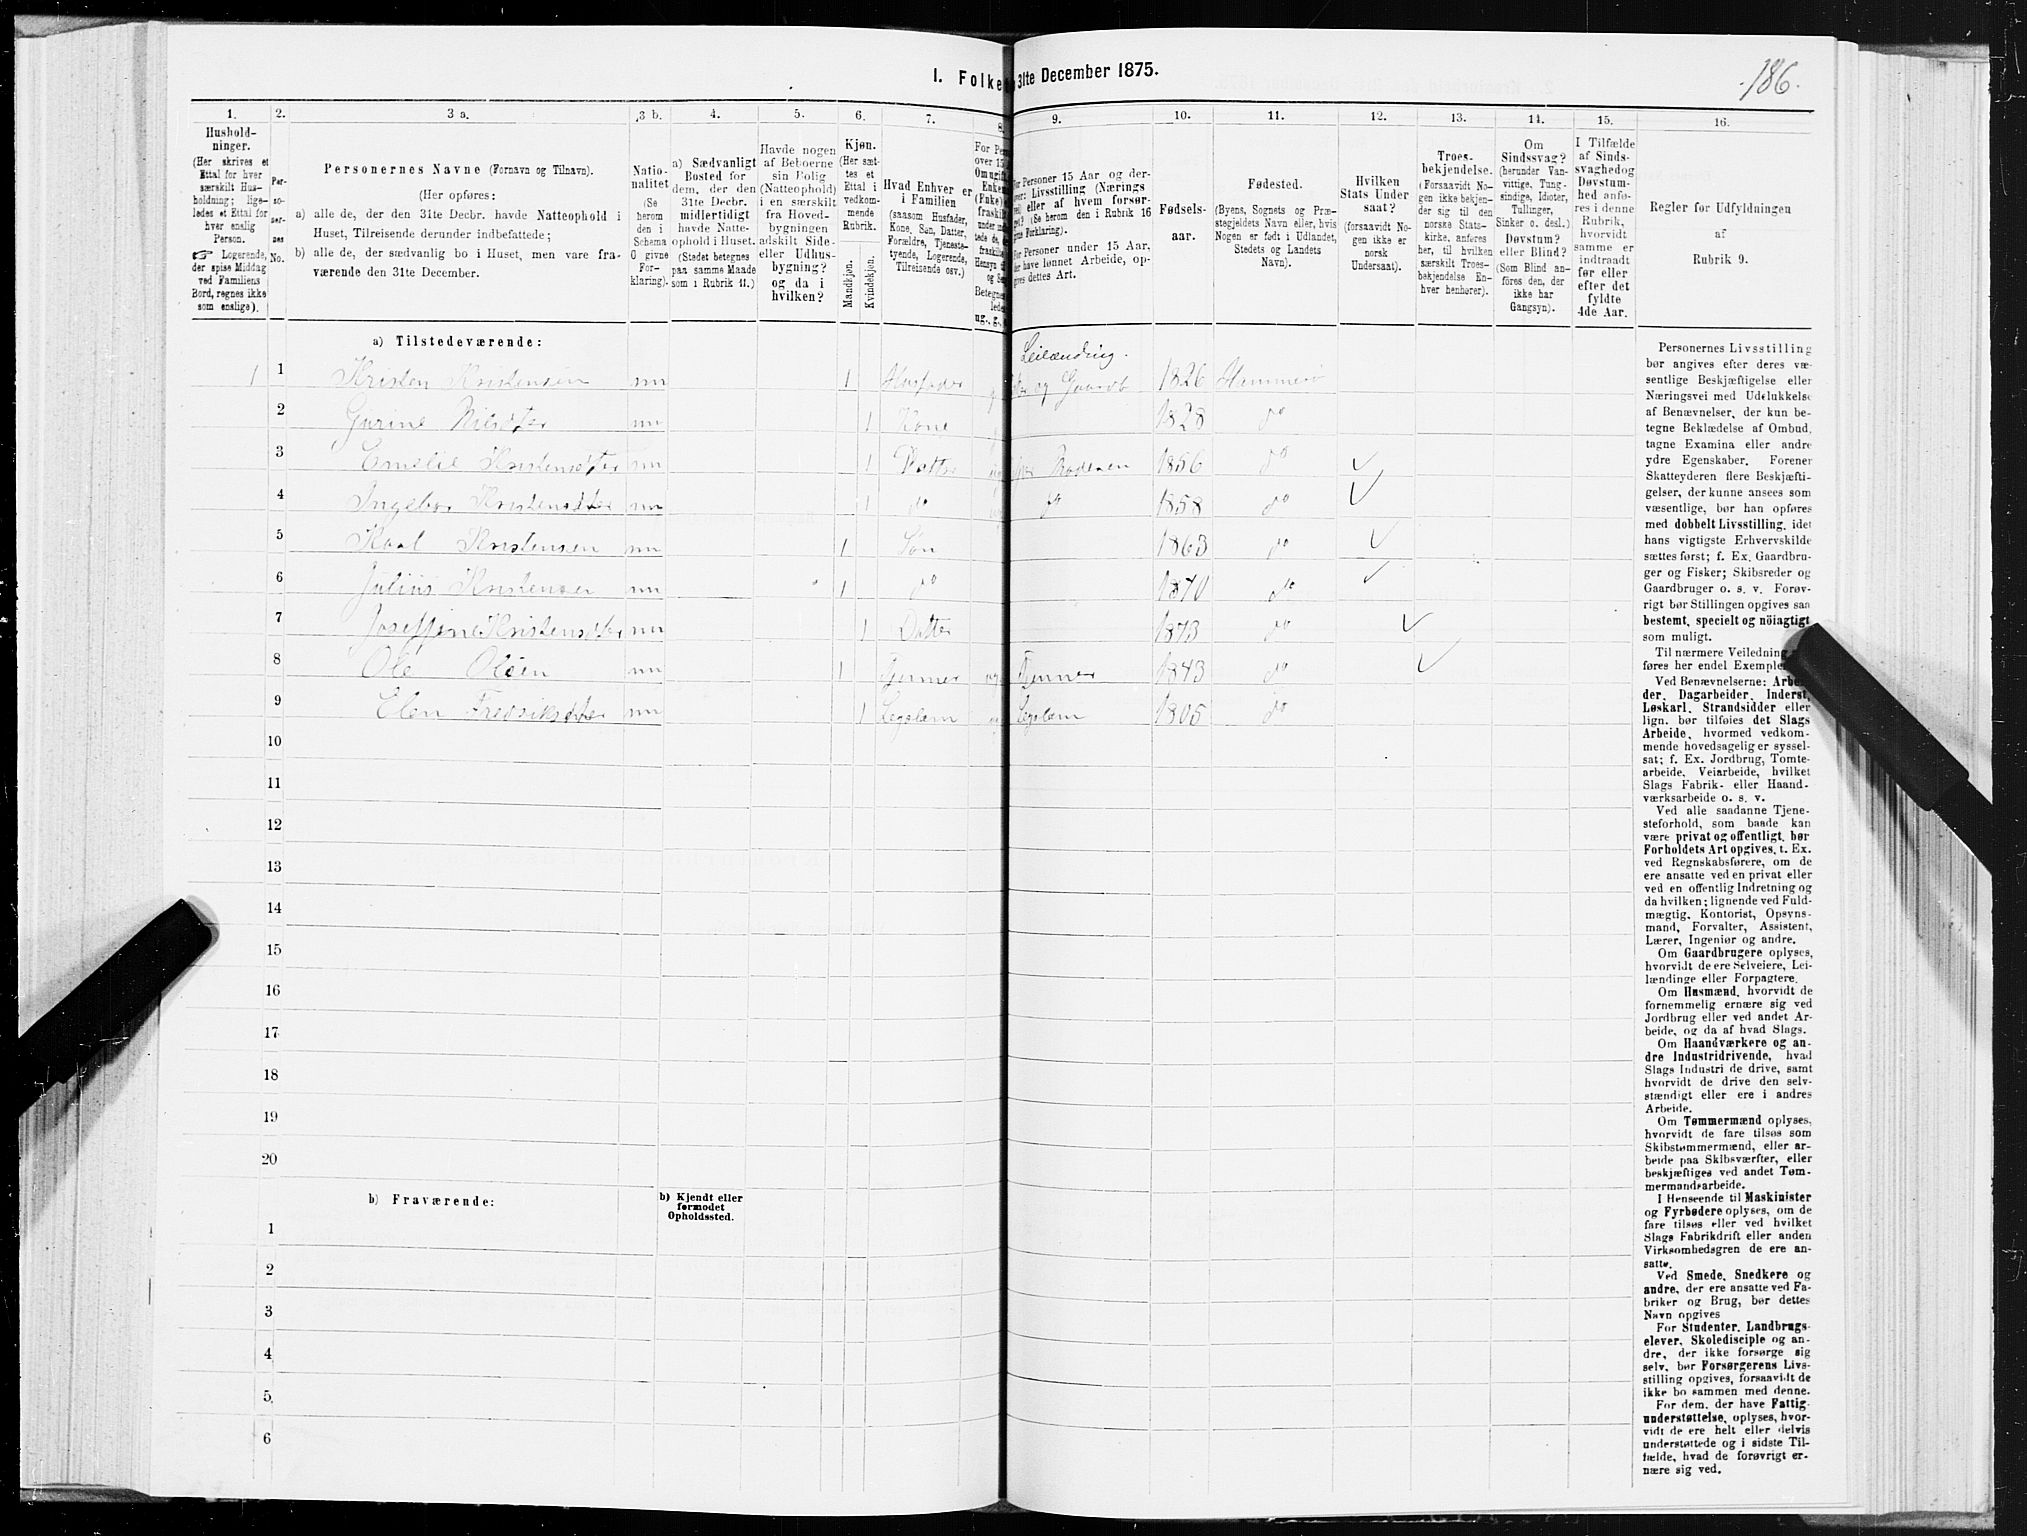 186.
I. Folke
31te December 1875.
1.
2.
3 a.
3 b.
4.
5.
6.
7.
8.
9.
10.
11.
12.
13.
14.
15.
16.
Hushold-
ninger.
(Her skrives et
Ettal for hver
særskilt Hus-
holdning; lige-
ledes et Ettal for
hver enslig
Person.
☞ Logerende,
der spise Middag
ved Familiens
Bord, regnes ikke
som enslige).
Per-
so-
ner-
nes
No.
Personernes Navne (Fornavn og Tilnavn).
(Her opføres:
a) alle de, der den 31te Decbr. havde Natteophold i
Huset, Tilreisende derunder indbefattede;
b) alle de, der sædvanlig bo i Huset, men vare fra-
værende den 31te December.
Natio-
nalitet
(Se
herom
den i
Schema
O givne
For-
klaring).
a) Sædvanligt
Bosted for
dem, der den
31te Decbr.
midlertidigt
havde Natte-
ophold i Huset.
(Stedet betegnes
paa samme Maade
som i Rubrik 11.)
Havde nogen
af Beboerne
sin Bolig
(Natteophold)
i en særskilt
fra Hoved-
bygningen
adskilt Side-
eller Udhus-
bygning?
og da i
hvilken?
Kjøn.
(Her sæt-
tes et
Ettal i
vedkom-
mende
Rubrik.
Mandkjøn.
Kvindekjøn.
Hvad Enhver er
i Familien
(saasom Husfader,
Kone, Søn, Datter,
Forældre, Tjeneste-
tyende, Logerende,
Tilreisende osv.)
For Personer 15 Aar og der-
over: Livsstilling (Nærings
vei) eller af hvem forsør-
get? (Se herom den i Rubrik 16
givne Forklaring).
For Personer under 15 Aar,
der have lønnet Arbeide, op-
gives dettes Art.
Fødsels-
aar.
Fødested.
(Byens, Sognets og Præ-
stegjeldets Navn eller, hvis
Nogen er født i Udlandet,
Stedets og Landets
Navn).
Hvilken
Stats Under
saat?
(forsaavidt No-
gen ikke er
norsk
Undersaat).
Troes-
bekjendelse.
(Forsaavidt No-
gen ikke bekjen-
der sig til den
norske Stats-
kirke, anføres
her, til hvilken
særskilt Troes-
bekjendelse En-
hver henhører).
Om
Sindssvag?
(herunder Van-
vittige, Tung-
sindige, Idioter,
Tullinger,
Sinker o. desl.)
Døvstum?
eller Blind?
(Som Blind an-
føres den, der
ikke har
Gangsyn).
I Tilfælde
af Sinds-
svaghed og
Døvstum-
hed anfø-
res i denne
Rubrik,
hvorvidt
samme er
indtraadt
før eller
efter det
fyldte
4de Aar.
Regler for Udfyldningen
af
Rubrik 9.
a) Tilstedeværende:
Leilænding.
1 1 Kristen Kristensen nn 1 Husfader og Gaardb 1826 Hammerø
2 Gurine Nilsdtter nn 1 Kone 1828 do
3 Emelie Kristensdtter nn 1 Datter Moderen 1856 do
4 Ingebor Kristensdtter nn 1 do do 1858 do
5 Karl Kristensen nn 1 Søn 1863 do
6 Julius Kristensen nn 1 do 1870 do
7 Joseffine Kristensdtter nn 1 Datter 1873 do
8 Ole Olsen nn 1 Tjenner Tjenner 1843 do
9 Elen Fredriksdtter nn 1 Legslem Legslem 1805 do
10
11
12
13
14
15
16
17
18
19
20
b) Fraværende:
b) Kjendt eller
formodet
Opholdssted.
1
2
3
4
5
6
Personernes Livsstilling
bør angives efter deres væ-
sentlige Beskjæftigelse eller
Næringsvei med Udelukkelse
af Benævnelser, der kun be-
tegne Beklædelse af Ombud,
tagne Examina eller andre
ydre Egenskaber. Forener
Skatteyderen flere Beskjæfti-
gelser, der kunne ansees som
væsentlige, bør han opføres
med dobbelt Livsstilling, idet
hans vigtigste Erhvervskilde
sættes først; f. Ex. Gaardbru-
ger og Fisker; Skibsreder og
Gaardbruger o. s. v. Forøv-
rigt bør Stillingen opgives saa
bestemt, specielt og nöiagtigt
som muligt.
Til nærmere Veiledning
føres her endel Exempler
Ved Benævnelserne: Arbei-
der, Dagarbeider, Inderst,
Løskarl, Strandsidder eller
lign. bør tilføies det Slags
Arbeide, hvormed vedkom-
mende hovedsagelig er syssel-
sat; f. Ex. Jordbrug, Tomte-
arbeide, Veiarbeide, hvilket
Slags Fabrik- eller Haand-
værksarbeide o. s. v.
Ved alle saadanne Tjene-
steforhold, som baade kan
være privat og offentligt, bør
Forholdets Art opgives, t. Ex.
ved Regnskabsførere, om de
ere ansatte ved en privat eller
ved en offentlig Indretning og
da hvilken; lignende ved Fuld-
mægtig, Kontorist, Opsyns-
mand, Forvalter, Assistent,
Lærer, Ingeniør og andre.
Om Gaardbrugere oplyses,
hvorvidt de ere Selveiere, Lei-
lændinge eller Forpagtere.
Om Husmænd, hvorvidt de
fornemmelig ernære sig ved
Jordbrug eller ved andet Ar-
beide, og da af hvad Slags.
Om Haandværkere og an-
dre Industridrivende, hvad
Slags Industri de drive, samt
hvorvidt de drive den selv-
stændigt eller ere i andres
Arbeide.
Om Tømmermænd oplyses,
hvorvidt de fare tilsøs som
Skibstømmermænd, eller ar-
beide paa Skibsværfter, eller
beskjæftiges ved andet Tøm-
mermandsarbeide.
I Henseende til Maskinister
og Fyrbødere oplyses, om de
fare tilsøs eller ved hvilket
Slags Fabrikdrift eller anden
Virksomhedsgren de ere an-
satte.
Ved Smede, Snedkere og
andre, der ere ansatte ved Fa-
briker og Brug, bør dettes
Navn opgives
For Studenter, Landbrugs-
elever, Skoledisciple og an-
dre, der ikke forsørge sig
selv, bør Forsørgerens Livs-
stilling opgives, forsaavidt de
ikke bo sammen med denne.
For dem, der have Fattig-
understøttelse, oplyses, hvor-
vidt de ere helt eller delvis
understøttede og i sidste Til-
fælde, hvad de forøvrigt er-
nære sig ved.